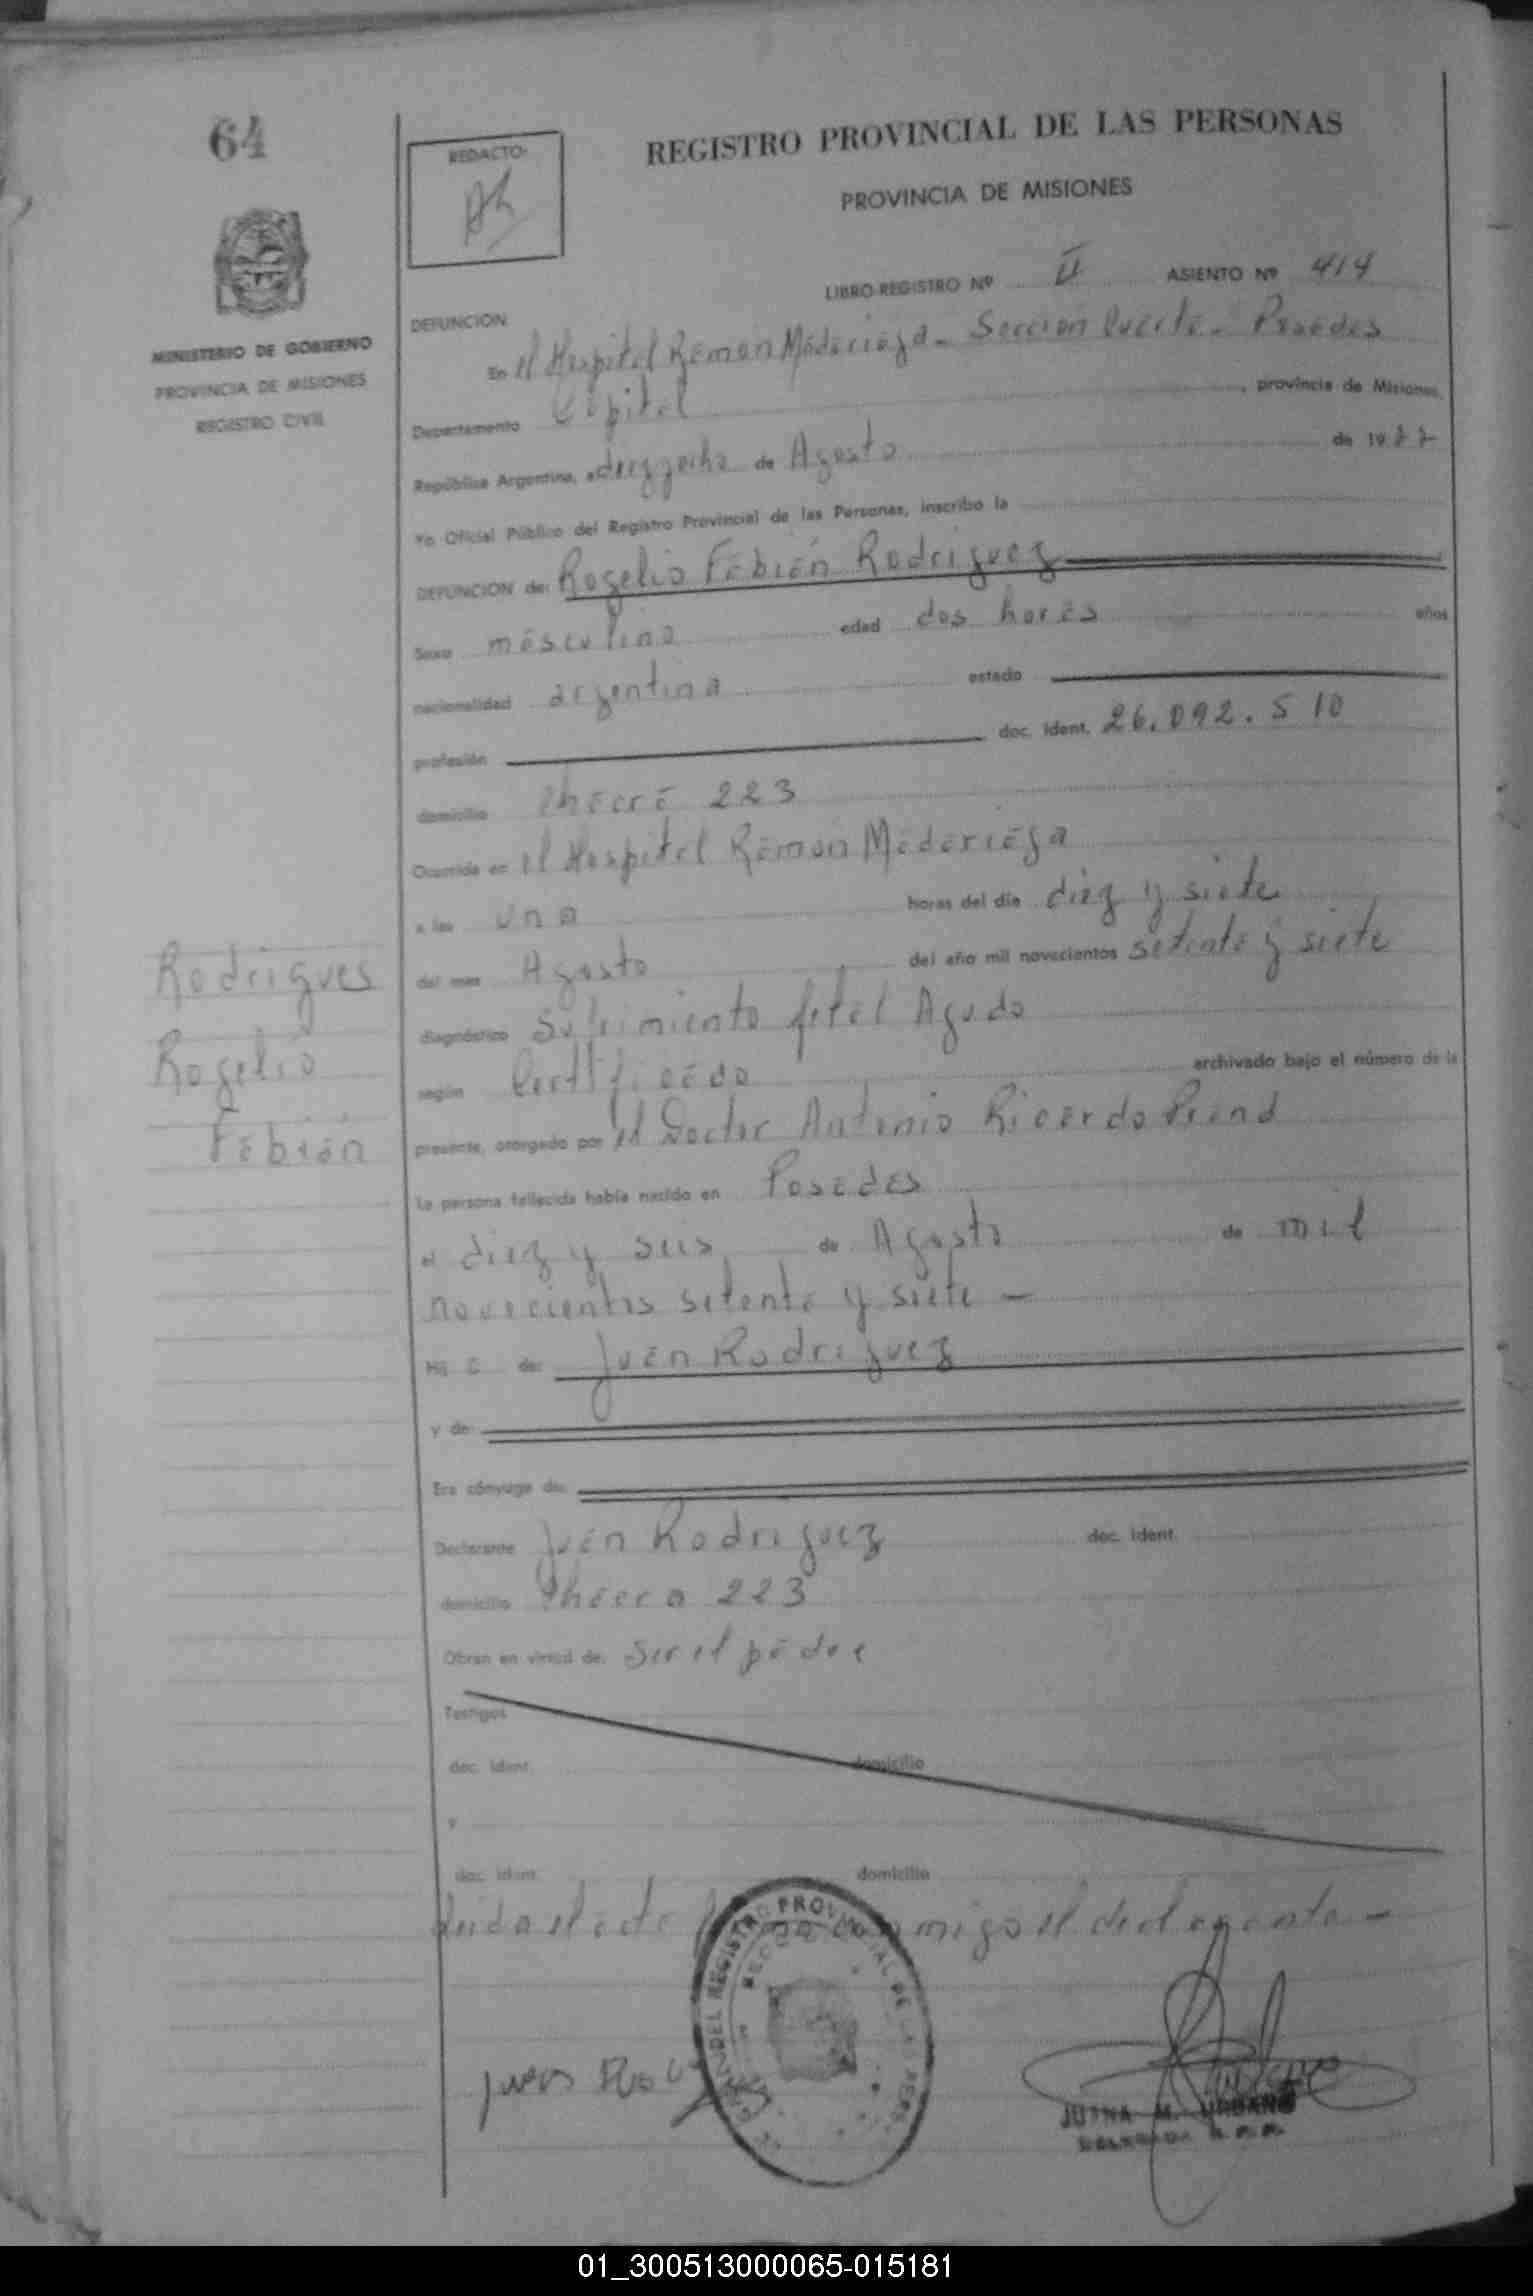 64
REDACTO:
REGISTRO PROVINCIAL DE LAS PERSONAS
PROVINCIA DE MISIONES
LIBRO-REGISTRO Nº II ASIENTO Nº 414
MINISTERIO DE GOBIERNO
PROVINCIA DE MISIONES
REGISTRO CIVIL
DEFUNCION
En el Hospital Ramon Madariaga - Sección Cuarta - Posadas
Departamento Capital, provincia de Misiones,
República Argentina, a diez y ocho de Agosto de 1977
Yo Oficial Público del Registro Provincial de las Personas, inscribo la
DEFUNCION de: Rogelio Fabián Rodriguez
Sexo masculino edad dos horas años
nacionalidad argentina estado
profesión doc. ident. 26.092.510
domicilio Chacra 223
Ocurrida en el Hospital Ramon Madariaga
a las una horas del día diez y siete
del mes Agosto del año mil novecientos setenta y siete
diagnóstico Sufrimiento fetal Agudo
según Certificado archivado bajo el número de la
presente, otorgado por el Doctor Antonio Ricardo
La persona fallecida había nacido en Posadas
el diez y seis de Agosto de mil
novecientos setenta y siete -
Hij o de: Juan Rodriguez
y de:
Era cónyuge de:
Declarante Juan Rodriguez doc. ident.
domicilio Chacra 223
Obran en virtud de: ser el padre
Testigos
doc. ident. domicilio
y
doc. ident. domicilio
Leida el acta firma conmigo el declarante -
Rodrigues
Rogelio
Fabián
REGISTRO PROVINCIAL DE LAS PERS
Juan
JUANA M. URBANO
DELEGADA R.P.P.
01_300513000065-015181